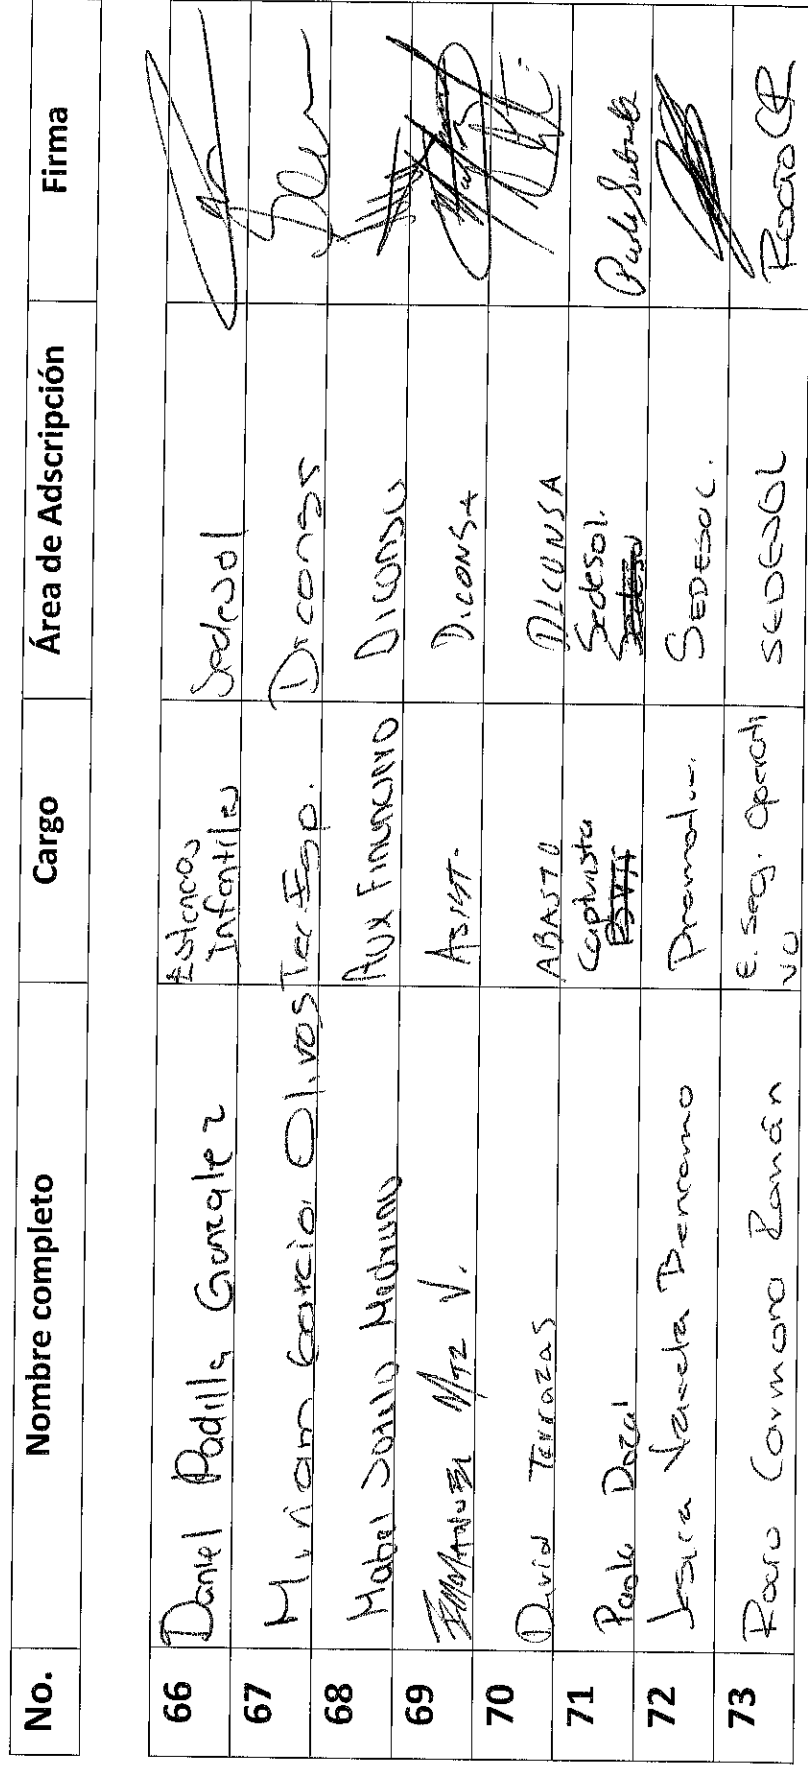 No. Nombre completo Cargo Área de Adscripción Firma
66 Daniel Padilla Gonzalez Estancias Infantiles Sedesol
67 Miriam Garcia Olivos Tec. Esp. Diconsa
68 Mabel Medrano Aux Financiero Diconsa
69 EMMANUEL MTZ V. ASIST. DICONSA
70 David Terrazas ABASTO DICONSA
71 Paola Dozal Capturista Sedesol.
72 Promotor. SEDESOL.
73 Rocio Carmona Román e. seg. Operati SEDESOL Rocio CR
vo